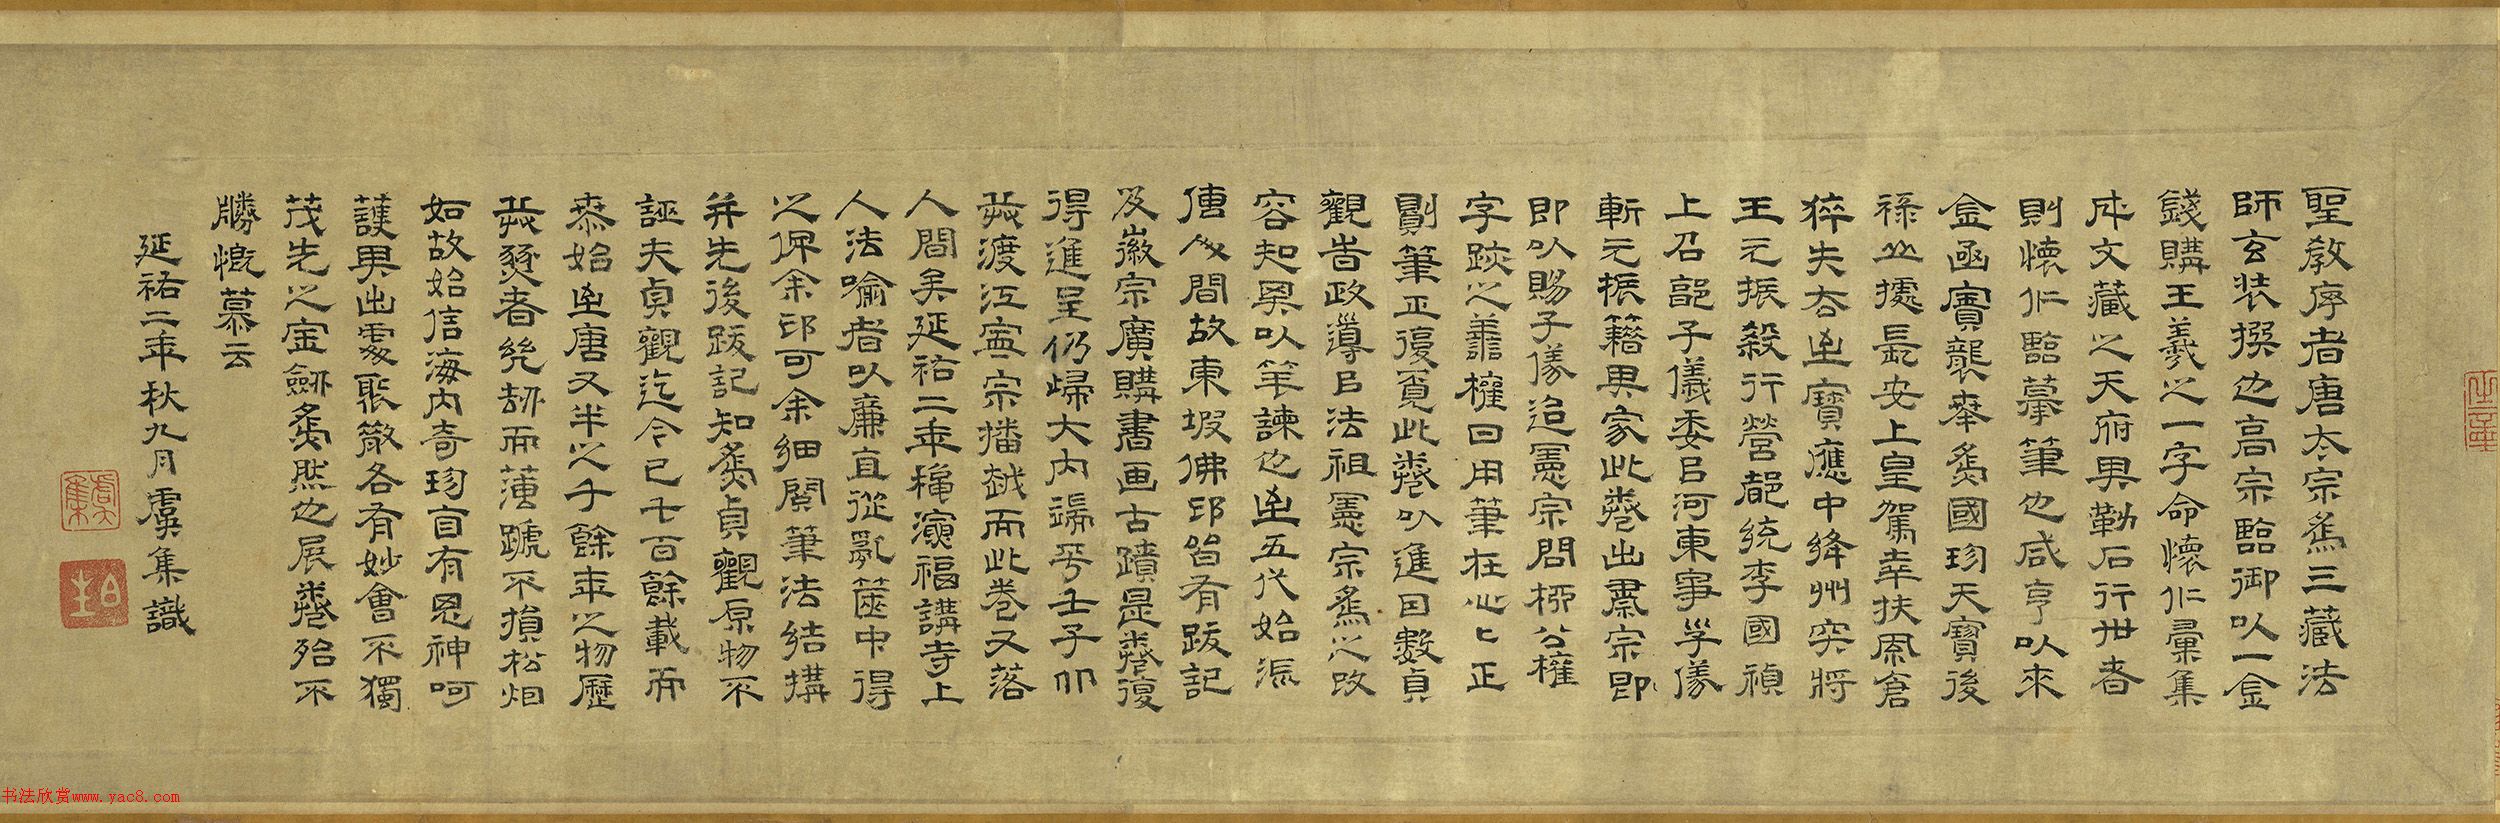 聖教序者唐太宗爲三藏法
師玄奘撰也高宗臨御以一金
錢購王羲之一字命懷仁彙集
成文藏之天府與勒石行世者
則懷仁臨摹筆也咸亨以來
金函寶襲奉爲國珍天寶後
祿山據長安上皇駕幸扶風倉
猝失去至寶應中絳州突將
王元振殺行營都統李國禎
上召郭子儀委以河東事子儀
斬元振籍其家此卷出肅宗即
即以賜子儀迨憲宗問柳公權
字跡之善權曰用筆在心心正
則筆正復覓此卷以進因數貞
觀昔政導以法祖憲宗爲之改
容知其以筆諫也至五代始流
傳人間故東坡佛印皆有跋記
及徽宗廣購書画古蹟是卷復
得進呈仍歸大內
渡江寧宗播越而此卷又落
人間矣延祐二年穐演福講寺上
人法喻者以廉直從亂篋中得
之俾余印可余細閱筆法結構
并先後跋記知爲貞觀原物不
誣夫貞觀迄今已七百餘載而
泰始至唐又半之千餘年之物歷
茲燹者幾刼而薄蹏不損松烟
如故始信海內奇珍百有恩神呵
護其出處聚散各有妙會不獨
茂先之寶劍爲然也展卷殆不
勝慨慕云
延祐二年秋九月虞集識
虞集
書法欣赏www.yac8.com